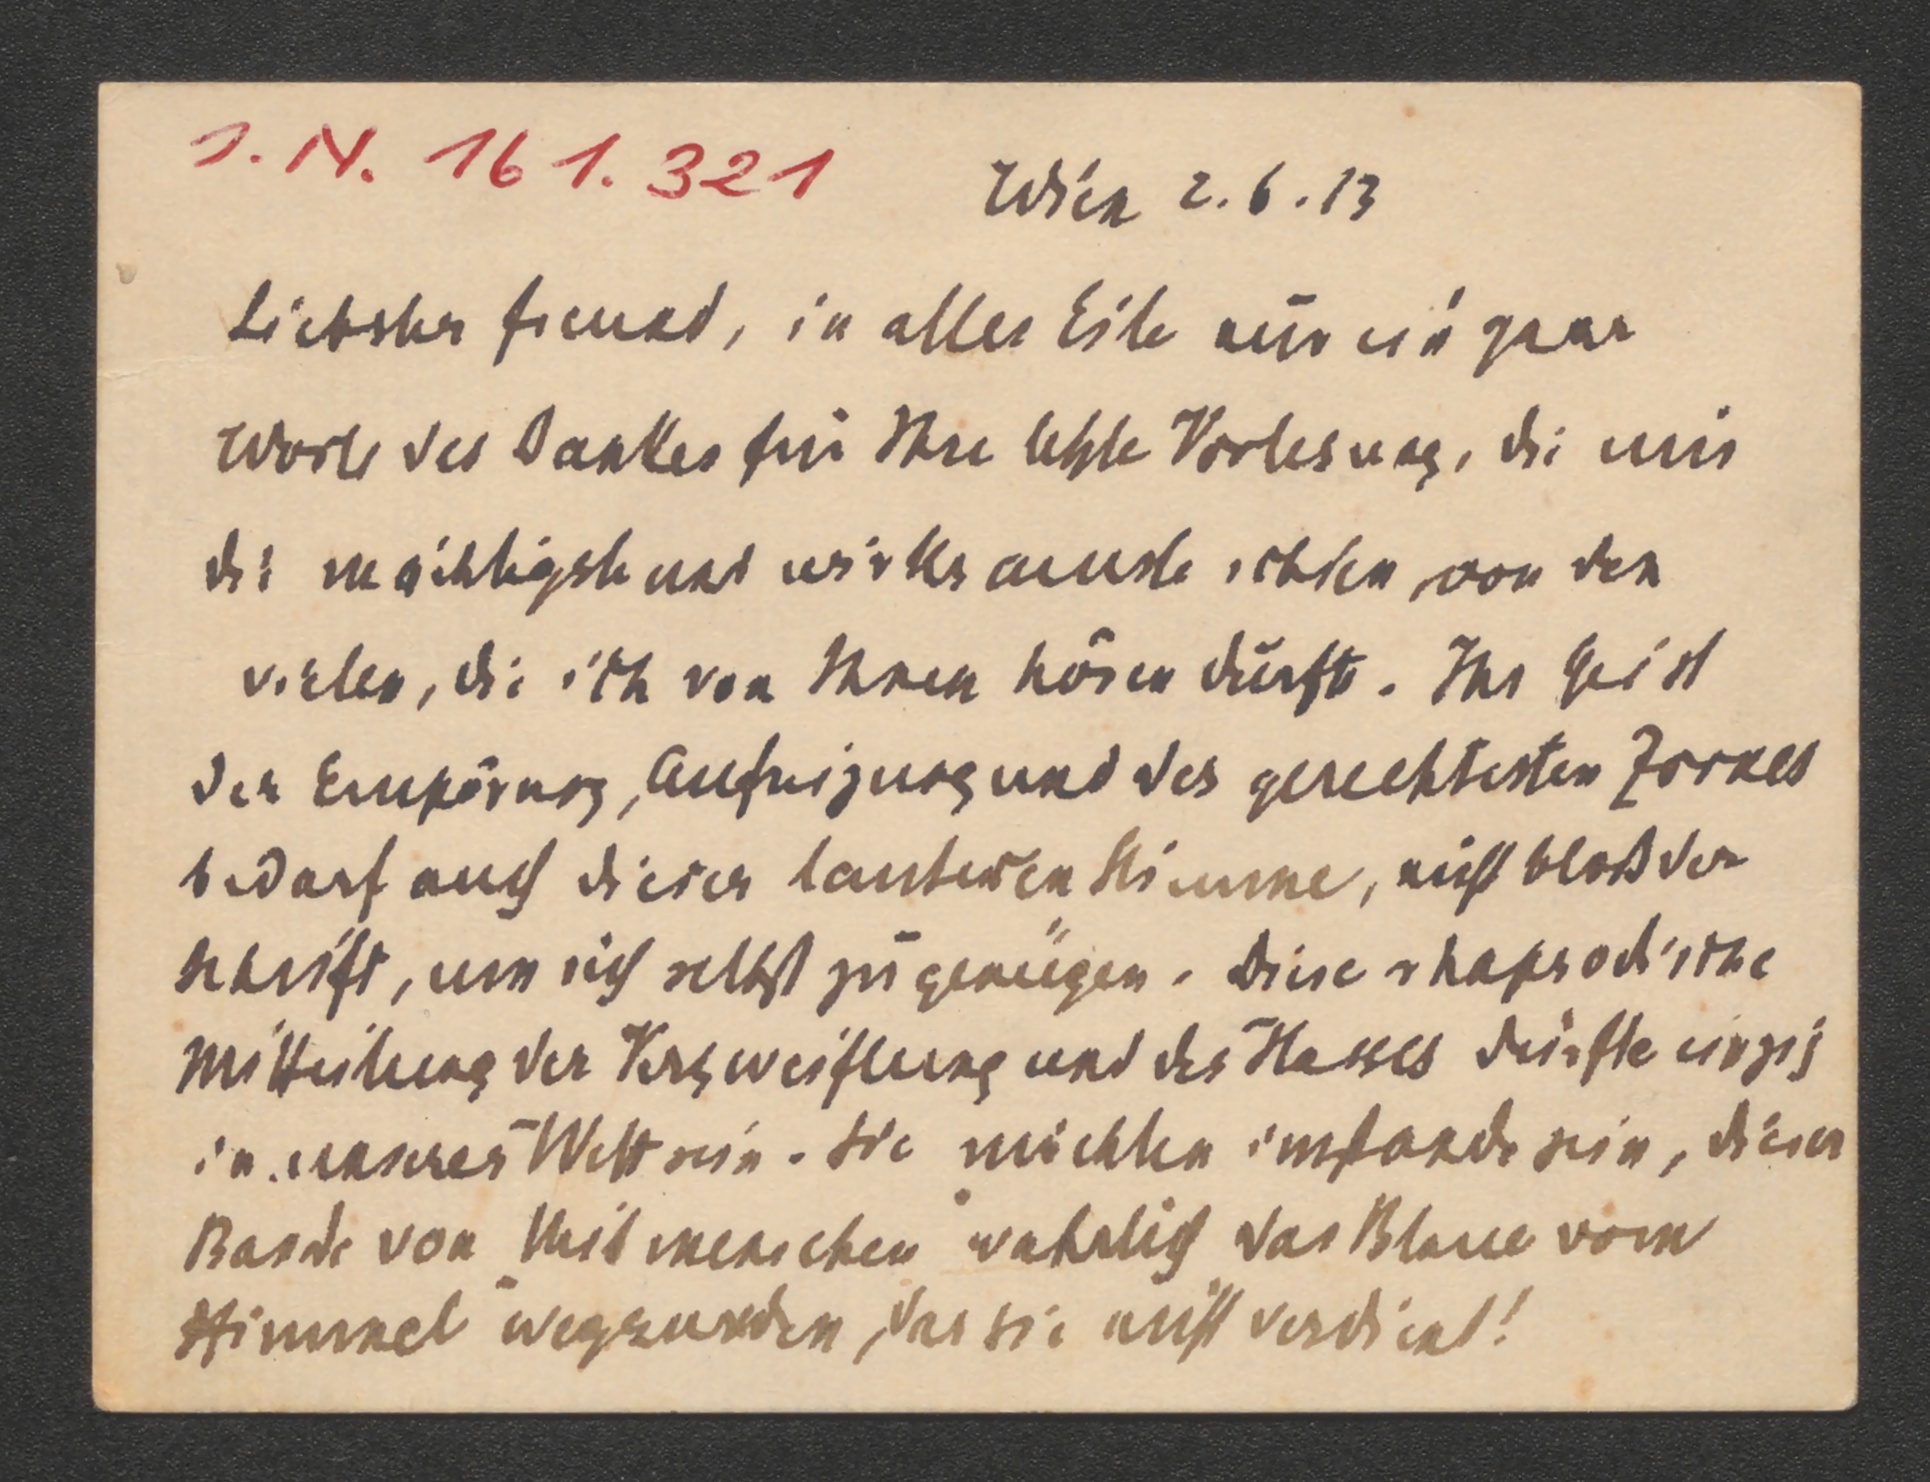 I. N. 161.321
Wien 2.6.13
Liebster Freund, in aller Eile nur ein paar
Worte des Dankes für Ihre letzte Vorlesung, die mir
die mächtigste und wirksamste schien, von den
vielen, die ich von Ihnen hören durfte. Ihr Geist
der Empörung, Aufreizung und des gerechtesten Zornes
bedarf auch dieser lauteren Stimme, nicht bloß der
Schrift, um sich selbst zu genügen. Diese rhapsodische
Mitteilung der Verzweiflung und des Hasses dürfte einzig
in unserer Welt sein. Sie möchten imstande sein, dieser
Bande von Mitmenschen wahrlich das Blaue vom
Himmel wegzureden, das sie nicht verdient!